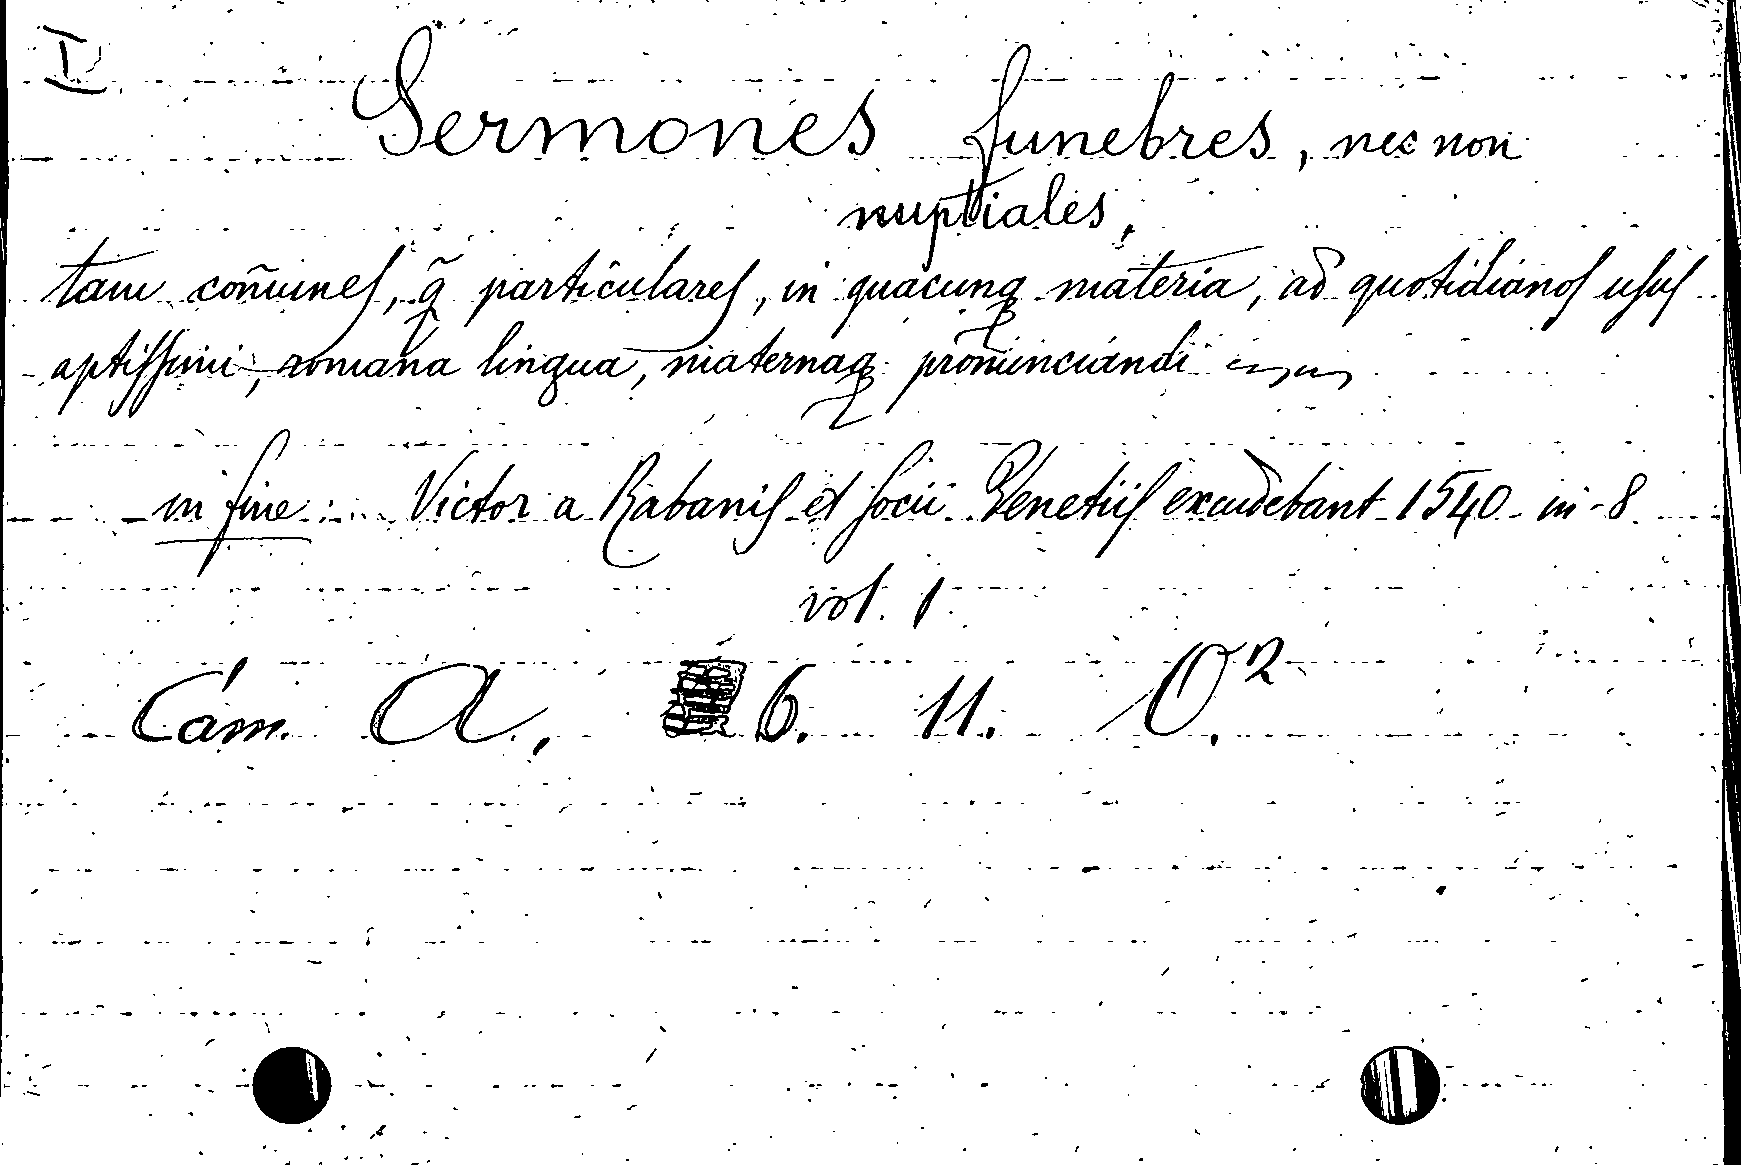 I
Sermones funebres, nec non
nuptiales,
tam com̄unes, q̃ particulares, in quacunq̨ materia, ad quotidianos usus
aptissimi, romana lingua, maternaq̨ pronunciandi
in fine : Victor a Rabanis et socii Venetiis excudebant 1540 in-8
vol. 1
Cam. A, 6. 11. O.²